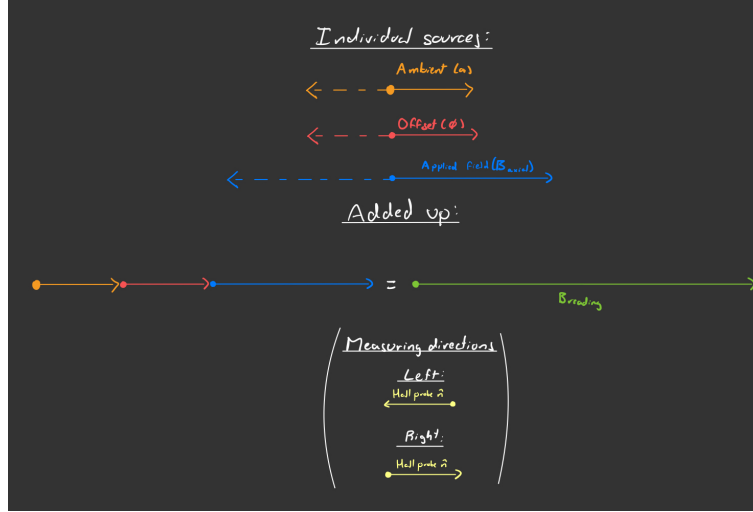 Individual sources:
Ambient (a)
Offset (ϕ)
Applied field (B axial)
Added up:
=
B reading
Measuring directions
Left:
Hall probe n̂
Right:
Hall probe n̂